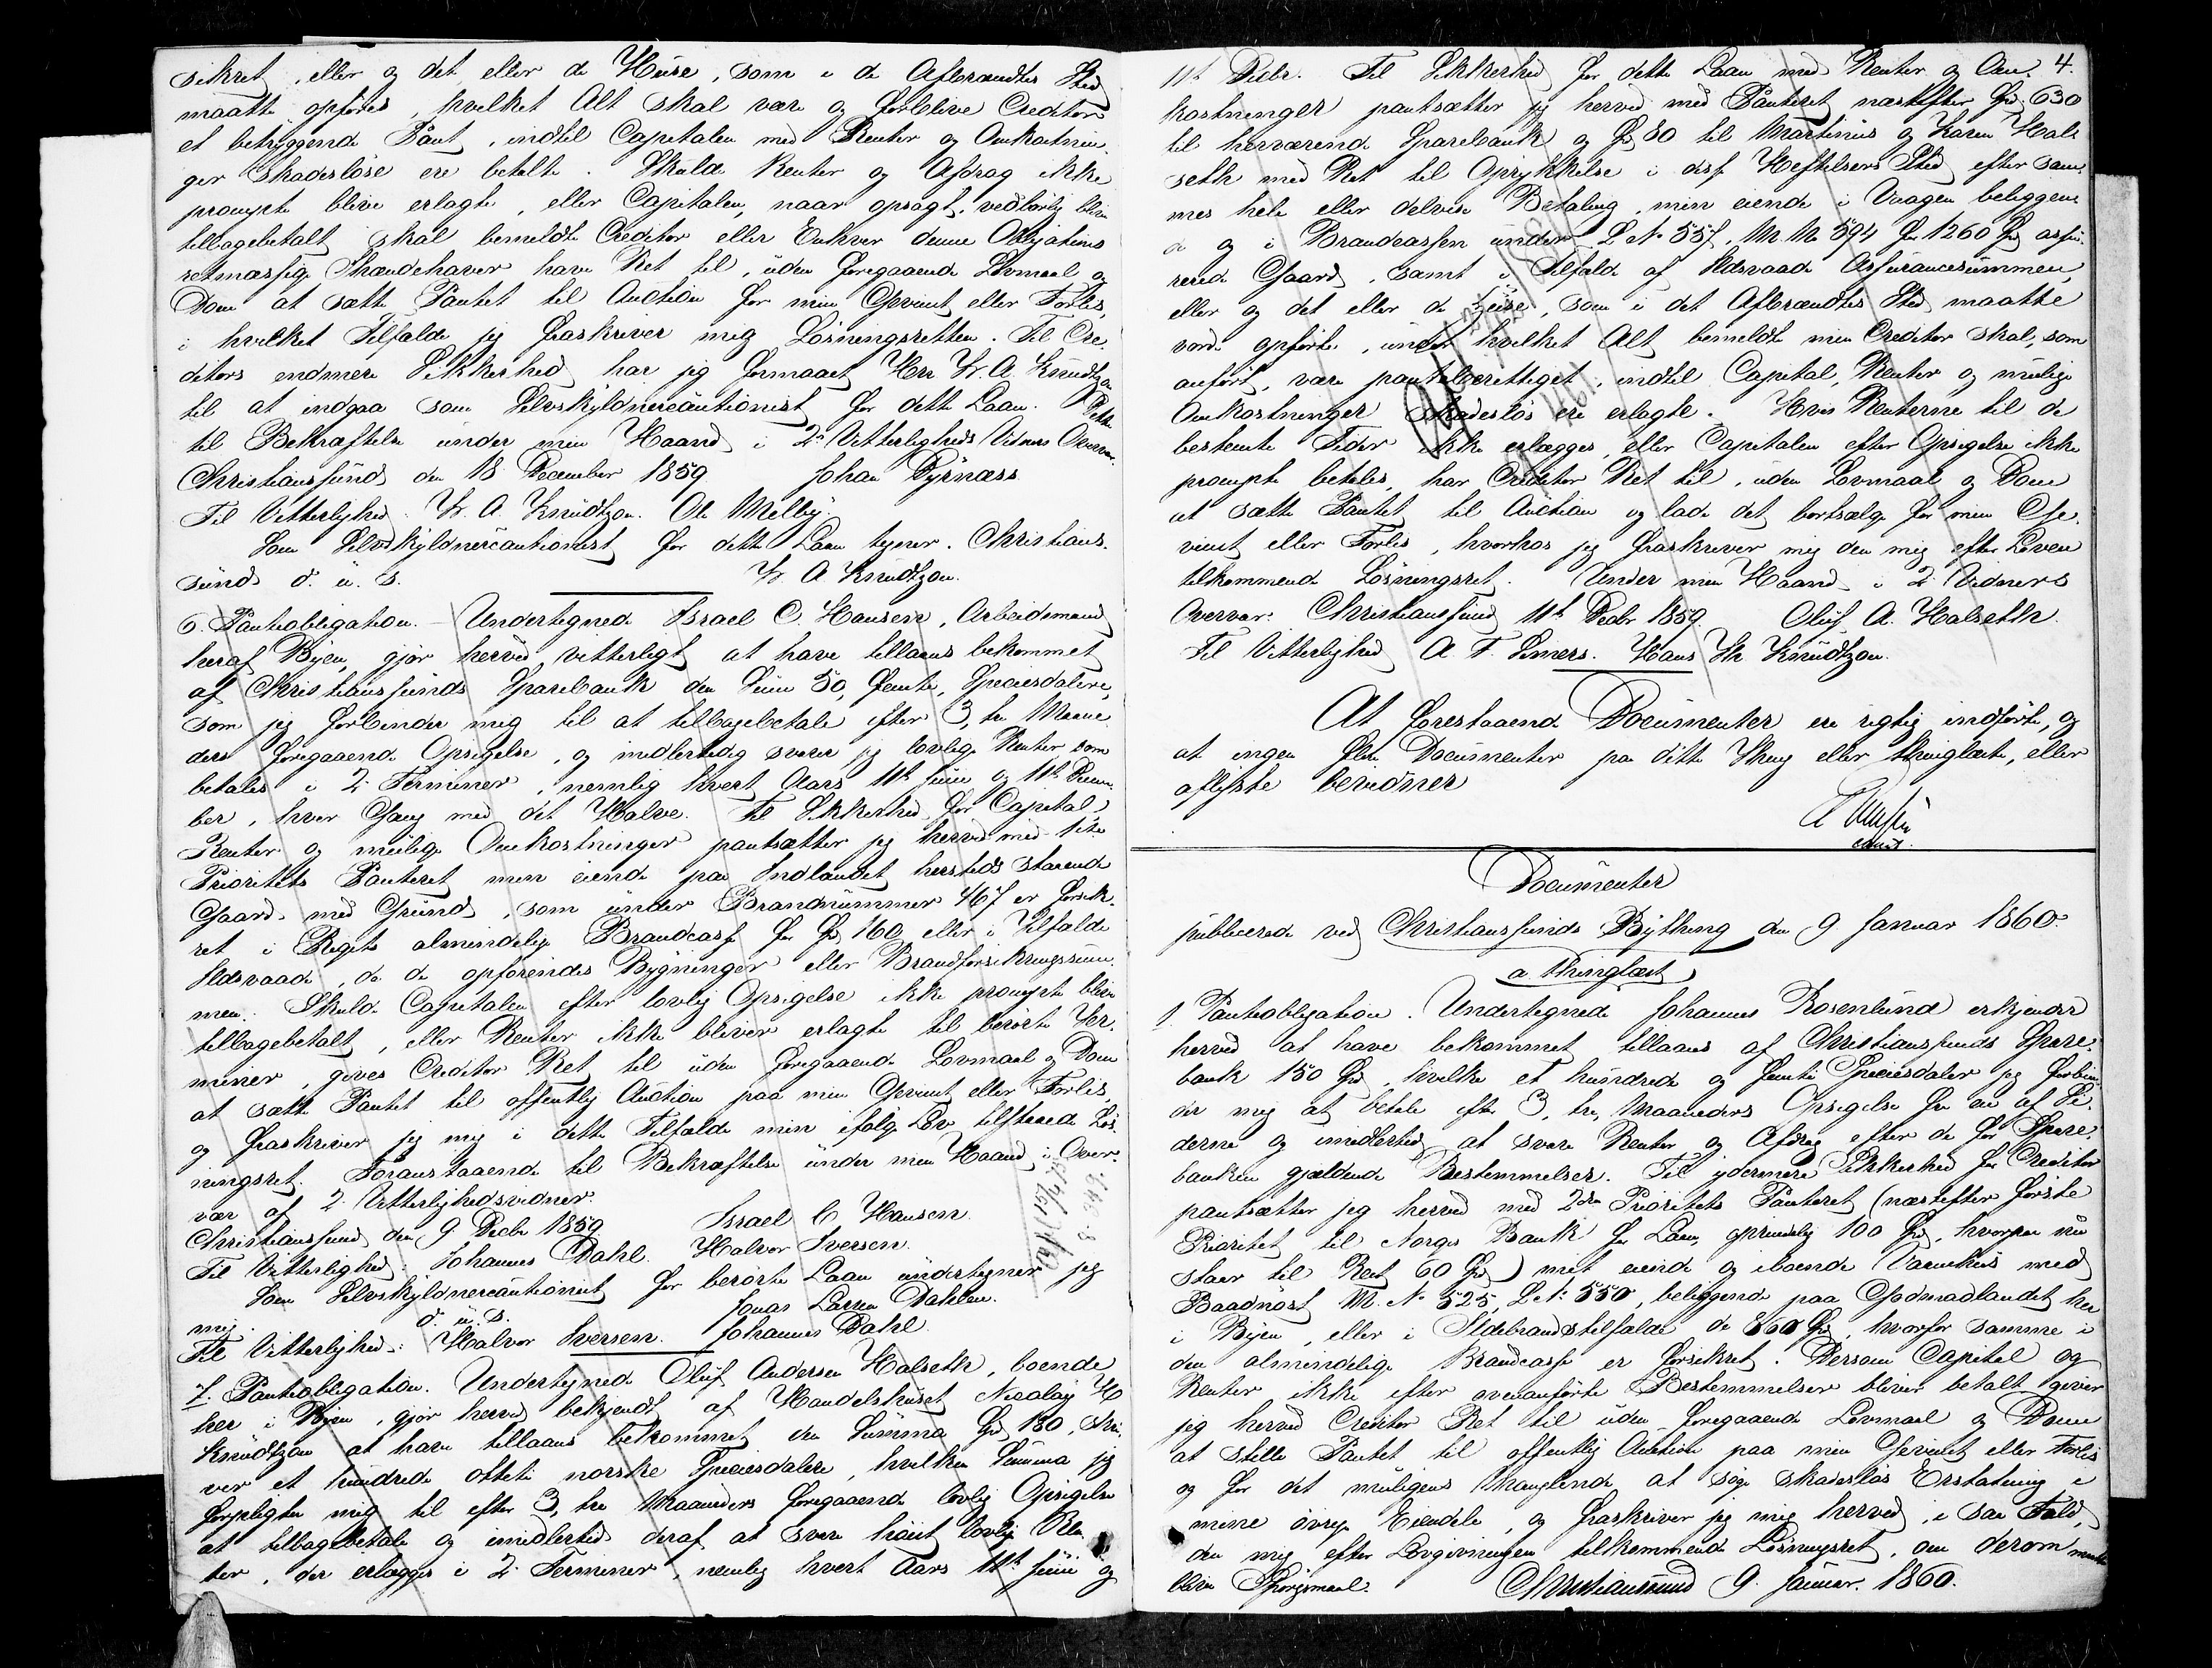 sikret, eller og det eller de Huse, som i de Afbrændtes Sted
maatte opføres, hvilket Alt skal være og forblive Creditor
et betryggende Pant, indtil Capitalen med Renter og Omkostnin-
ger skadesløse ere betalte. Skulde Renter og Afdrag ikke
prompte blive erlagte, eller Capitalen, naar opsagt, vedbørlig blive
tilbagebetalt skal bemeldte Creditor eller Enhver denne Obligations
retmæssige Ihændehaver have Ret til, uden foregaaende Lovmaal og
Dom at sætte Pantet til Auction for min Gevinst eller Forlis,
i hvilket Tilfælde jeg fraskriver mig Løsningsretten. Til Cre-
ditors endmere Sikkerhed har jeg formaaet Herr Fr. A. Knudtzon
til at indgaa som Selvskyldnercautionist for dette Laan. Dette
til Bekræftelse under min Haand i 2de Vitterligheds Vidners Overvær.
Christianssund den 18 December 1859 Johan Dyrnæss
Til Vitterlighed. Fr. A. Knudtzon. Ole Melby.
Som Selvskyldnercautionist for dette Laan tegner. Christians-
sund d. u. s. Fr A Knudtzon.
6. Panteobligation. – Undertegnede Israel C. Hansen, Arbeidsmand
heraf Byen, gjør herved vitterligt at have tillaans bekommet
af Christianssunds Sparebank den Sum 50, femti, Speciesdalere,
som jeg forbinder mig til at tilbagebetale efter 3, tre Maane-
ders foregaaende Opsigelse, og imidlertidig svarer jeg lovlige Renter som
betales i 2 Terminer, nemlig hvert Aars 11te Juni og 11te Decem-
ber, hver Gang med det Halve. Til Sikkerhed for Capital,
Renter og mulige Omkostninger pantsætter jeg herved med 1ste
Prioritets Panteret min eiende paa Indlandet hersteds staaende
Gaard med Grund, som under Brandnummer 467 er forsik-
ret i Rigets almindelige Brandcasse for Spd 160, eller i Tilfælde
Ildsvaade, de da opførendes Bygninger eller Brandforsikringssum-
men. Skulde Capitalen efter lovlig Opsigelse ikke prompte blive
tilbagebetalt, eller Renter ikke bliver erlagte til berørte Ter-
miner, gives Creditor Ret til uden foregaaende Lovmaal og Dom
at sætte Pantet til offentlig Auction paa min Gevinst eller Forlis,
og fraskriver jeg mig i dette Tilfælde min ifølge Lov tilstaaede Løs-
ningsret. Foranstaaende til Bekræftelse under min Haand i Over-
vær af 2 Vitterlighedsvidner.
Christianssund den 9 Decbr 1859. Israel C Hansen
Til Vitterlighed: Johannes Dahl. Halvor Iversen.
Som Selvskyldnercautionist for berørte Laan undertegner jeg
mig. d. u. s. Jonas Larsen Dahlen.
Til Vitterlighed: Halvor Iversen. Johannes Dahl
7. Panteobligation. Undertegnede Oluf Andersen Halseth, boende
her i Byen, gjør herved bekjendt af Handelshuset Nicolay H
Knudtzon at have tillaans bekommet den Summa Spd 180, skri-
ver et hundrede otteti norske Speciesdalere, hvilken Summa jeg
forpligter mig til efter 3, tre Maaneders foregaaende lovlig Opsigelse
at tilbagebetale og imidlertid deraf at svare høiest lovlige Ren-
ter, der erlægges i 2 Terminer, nemlig hvert Aars 11te Juni og
4.
11te Decbr. Til Sikkerhed for dette Laan med Renter og Om-
kostninger pantsætter jeg herved med Panteret næstefter Spd. 630
til herværende Sparebank og Spd 80 til Martinus og Karen Hals-
seth med Ret til Oprykkelse i disse Heftelsers Sted efter sam-
mes hele eller delvise Betaling, min eiende i Vaagen beliggen-
de og i Brandcassen under L No 557, M. No 594 for 1260 Spd assu-
rerede Gaard, samt i Tilfælde af Ildsvaade Assurancesummen,
eller og det eller de Huse, som i det Afbrændtes Sted maatte
vorde opførte, under hvilket Alt bemeldte min Creditor skal, som
anført, være panteberettiget, indtil Capital, Renter og mulige
Omkostninger skadesløs ere erlagte. Hvis Renterne til de
bestemte Tider ikke erlægges, eller Capitalen efter Opsigelse ikke
prompte betales, har Creditor Ret til, uden Lovmaal og Dom
at sætte Pantet til Auction og lade det bortsælge for min Ge-
vinst eller Forlis, hvorhos jeg fraskriver mig den mig efter Loven
tilkommende Løsningsret. Under min Haand i 2 Vidners
Overvær. Christianssund 11te Decbr 1859. Oluf A. Halseth
Til Vitterlighed A F. Simers. Hans Chr Knudtzon.
At forestaaende Documenter ere rigtig indførte, og
at ingen flere Documenter paa dette Thing eller thinglæste, eller
aflyste bevidner
const.
Documenter
publicerede ved Christianssunds Bything den 9 Januar 1860.
a. Thinglæst
1. Panteobligation. Undertegnede Johannes Rosenlund erkjender
herved at have bekommet tillaans af Christianssunds Spare-
bank 150 Spd, hvilke et hundrede og femti Speciesdaler jeg forbin-
der mig at betale efter 3, tre, Maaneders Opsigelse fra en af Si-
derne og imidlertid at svare Renter og Afdrag efter de for Spare-
banken gjældende Bestemmelser. Til ydermere Sikkerhed for Creditor
pantsætter jeg herved med 2den Prioritets Panteret (næstefter første
Prioritet til Norges Bank for Laan, oprindelig 100 Spd, hvorpaa nu
staar til Rest 60 Spd) mit eiende og iboende Vaanehus med
Baadnøst M. No 525, L No 550, beliggende paa Godmadlandet her
i Byen, eller i Ildebrandstilfælde de 860 Spd, hvorfor samme i
den almindelige Brandcasse er forsikret. Dersom Capital og
Renter ikke efter ovenanførte Bestemmelser bliver betalt giver
jeg herved Creditor Ret til uden foregaaende Lovmaal og Dom
at stille Pantet til offentlig Auction paa min Gevinst eller Forlis
og for det muligens Manglende at søge skadesløs Erstatning i
mine øvrige Eiendele, og fraskriver jeg mig herved, i saa Fald,
den mig efter Lovgivningen tilkommende Løsningsret, om derom maatte
blive Spørgsmaal. Christianssund 9. Januar. 1860.